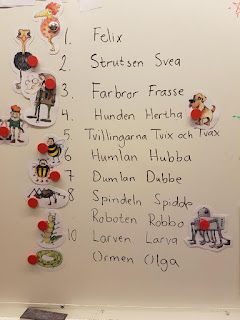 1. Felix
2. Strutsen Svea
3. Farbror Frasse
4. Hunden Hertha
5. Tvillingarna Tvix och Tvax
6 Humlan Hubba
7 Dumlan Dubbe
8 Spindeln Spiddo
Roboten Robbo
10 Larven Larva
Ormen Olga